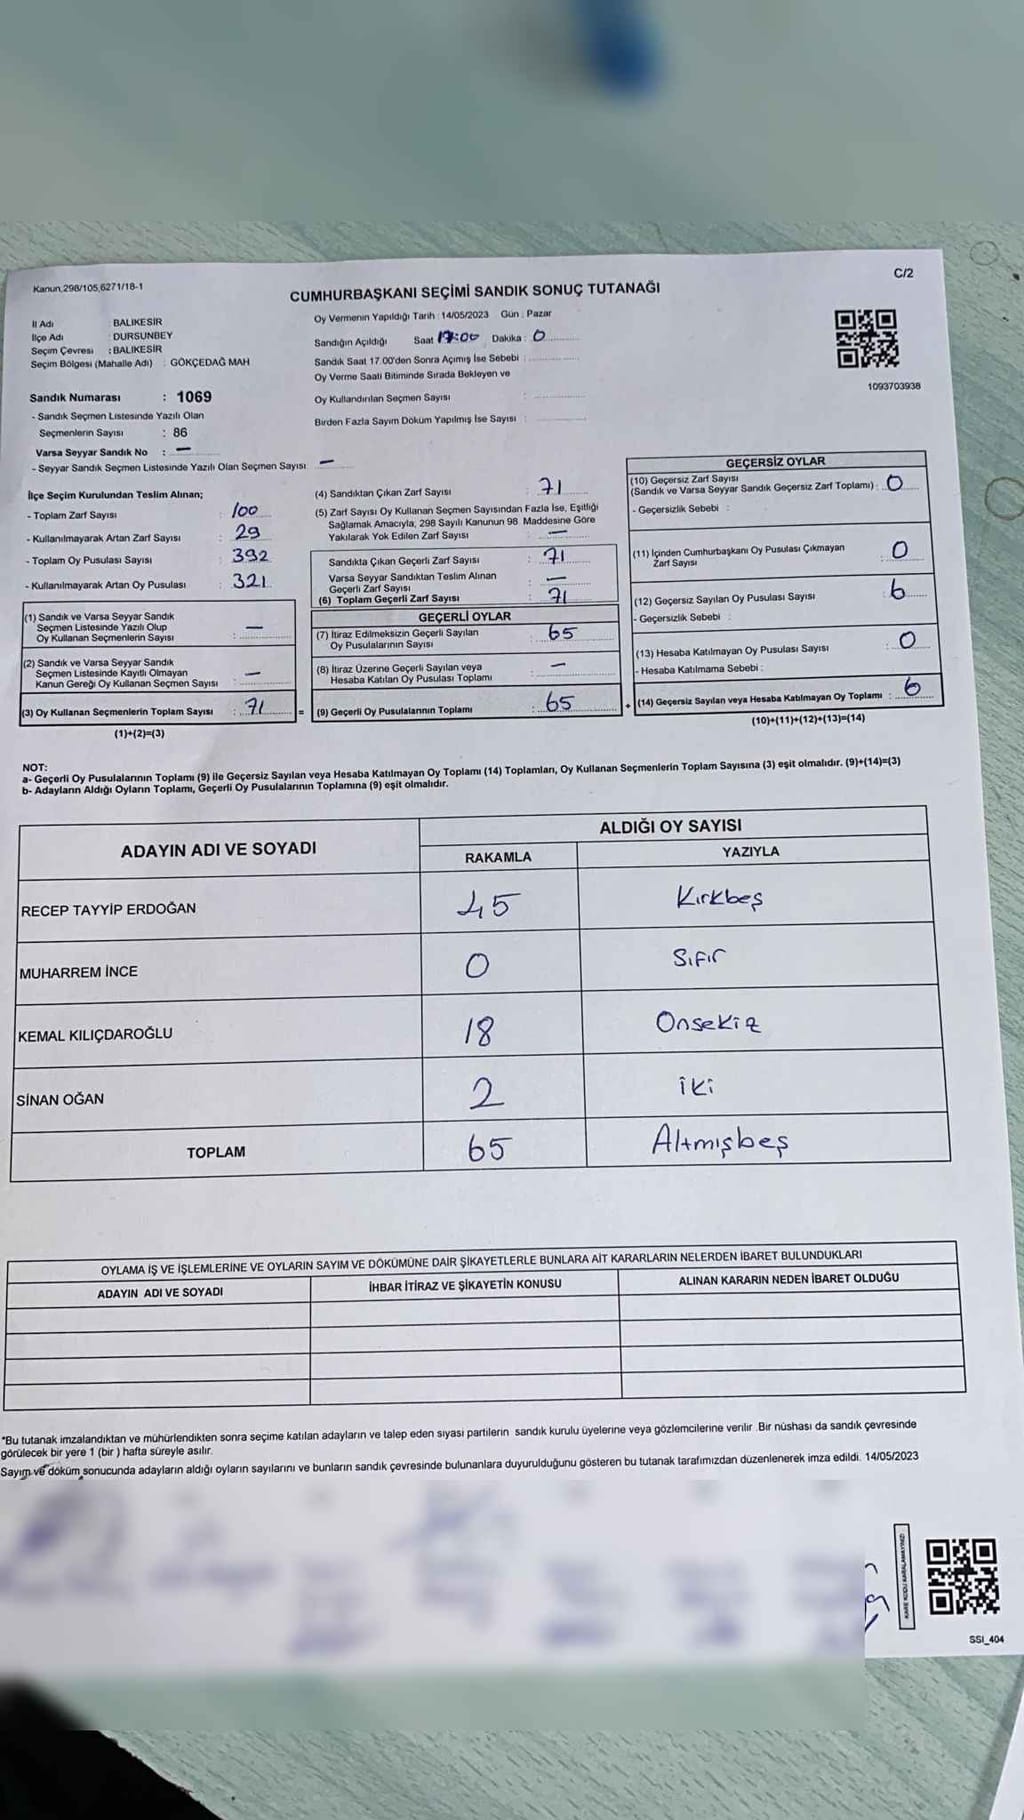 Kanun,298/105,6271/18-1
C/2
CUMHURBAŞKANI SEÇİMİ SANDIK SONUÇ TUTANAĞI
İl Adı BALIKESİR
İlçe Adı DURSUNBEY
Seçim Çevresi : BALIKESİR
Seçim Bölgesi (Mahalle Adı) : GÖKÇEDAĞ MAH
Sandık Numarası : 1069
- Sandık Seçmen Listesinde Yazılı Olan
Seçmenlerin Sayısı : 86
Varsa Seyyar Sandık No : —
- Seyyar Sandık Seçmen Listesinde Yazılı Olan Seçmen Sayısı —
Oy Vermenin Yapıldığı Tarih : 14/05/2023 Gün : Pazar
Sandığın Açıldığı Saat 17:00 Dakika : 0
Sandık Saat 17.00'den Sonra Açımış İse Sebebi :
Oy Verme Saati Bitiminde Sırada Bekleyen ve
Oy Kullandırılan Seçmen Sayısı :
Birden Fazla Sayım Döküm Yapılmış İse Sayısı :
1093703938
İlçe Seçim Kurulundan Teslim Alınan;
- Toplam Zarf Sayısı : 100
- Kullanılmayarak Artan Zarf Sayısı : 29
- Toplam Oy Pusulası Sayısı : 392
- Kullanılmayarak Artan Oy Pusulası : 321
(1) Sandık ve Varsa Seyyar Sandık
Seçmen Listesinde Yazılı Olup
Oy Kullanan Seçmenlerin Sayısı : —
(2) Sandık ve Varsa Seyyar Sandık
Seçmen Listesinde Kayıtlı Olmayan
Kanun Gereği Oy Kullanan Seçmen Sayısı : —
(3) Oy Kullanan Seçmenlerin Toplam Sayısı : 71 =
(1)+(2)=(3)
(4) Sandıktan Çıkan Zarf Sayısı : 71
(5) Zarf Sayısı Oy Kullanan Seçmen Sayısından Fazla İse, Eşitliği
Sağlamak Amacıyla, 298 Sayılı Kanunun 98 Maddesine Göre
Yakılarak Yok Edilen Zarf Sayısı : —
Sandıkta Çıkan Geçerli Zarf Sayısı : 71
Varsa Seyyar Sandıktan Teslim Alınan
Geçerli Zarf Sayısı : —
(6) Toplam Geçerli Zarf Sayısı : 71
GEÇERLİ OYLAR
(7) İtiraz Edilmeksizin Geçerli Sayılan
Oy Pusulalarının Sayısı : 65
(8) İtiraz Üzerine Geçerli Sayılan veya
Hesaba Katılan Oy Pusulası Toplamı : —
(9) Geçerli Oy Pusulalarının Toplamı : 65 +
GEÇERSİZ OYLAR
(10) Geçersiz Zarf Sayısı
(Sandık ve Varsa Seyyar Sandık Geçersiz Zarf Toplamı) : 0
- Geçersizlik Sebebi :
(11) İçinden Cumhurbaşkanı Oy Pusulası Çıkmayan
Zarf Sayısı : 0
(12) Geçersiz Sayılan Oy Pusulası Sayısı : 6
- Geçersizlik Sebebi :
(13) Hesaba Katılmayan Oy Pusulası Sayısı : 0
- Hesaba Katılmama Sebebi :
(14) Geçersiz Sayılan veya Hesaba Katılmayan Oy Toplamı : 6
(10)+(11)+(12)+(13)=(14)
NOT:
a- Geçerli Oy Pusulalarının Toplamı (9) ile Geçersiz Sayılan veya Hesaba Katılmayan Oy Toplamı (14) Toplamları, Oy Kullanan Seçmenlerin Toplam Sayısına (3) eşit olmalıdır. (9)+(14)=(3)
b- Adayların Aldığı Oyların Toplamı, Geçerli Oy Pusulalarının Toplamına (9) eşit olmalıdır.
ADAYIN ADI VE SOYADI
ALDIĞI OY SAYISI
RAKAMLA YAZIYLA
RECEP TAYYİP ERDOĞAN 45 Kırkbeş
MUHARREM İNCE 0 Sıfır
KEMAL KILIÇDAROĞLU 18 Onsekiz
SİNAN OĞAN 2 iki
TOPLAM 65 Altmışbeş
OYLAMA İŞ VE İŞLEMLERİNE VE OYLARIN SAYIM VE DÖKÜMÜNE DAİR ŞİKAYETLERLE BUNLARA AİT KARARLARIN NELERDEN İBARET BULUNDUKLARI
ADAYIN ADI VE SOYADI İHBAR İTİRAZ VE ŞİKAYETİN KONUSU ALINAN KARARIN NEDEN İBARET OLDUĞU
*Bu tutanak imzalandıktan ve mühürlendikten sonra seçime katılan adayların ve talep eden siyasi partilerin sandık kurulu üyelerine veya gözlemcilerine verilir. Bir nüshası da sandık çevresinde
görülecek bir yere 1 (bir ) hafta süreyle asılır.
Sayım ve döküm sonucunda adayların aldığı oyların sayılarını ve bunların sandık çevresinde bulunanlara duyurulduğunu gösteren bu tutanak tarafımızdan düzenlenerek imza edildi. 14/05/2023
KARE KODU KARALAMAYINIZ!
SSI_404